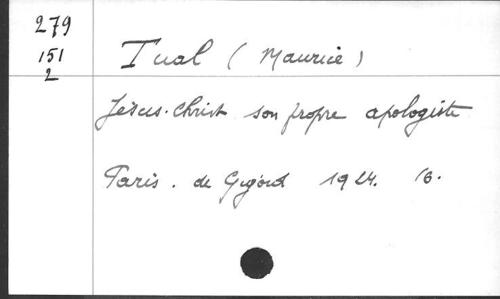 279
151
2
Tual (Maurice)
Jésus-Christ son propre apologiste
Paris. de Gigord 1924. 16.